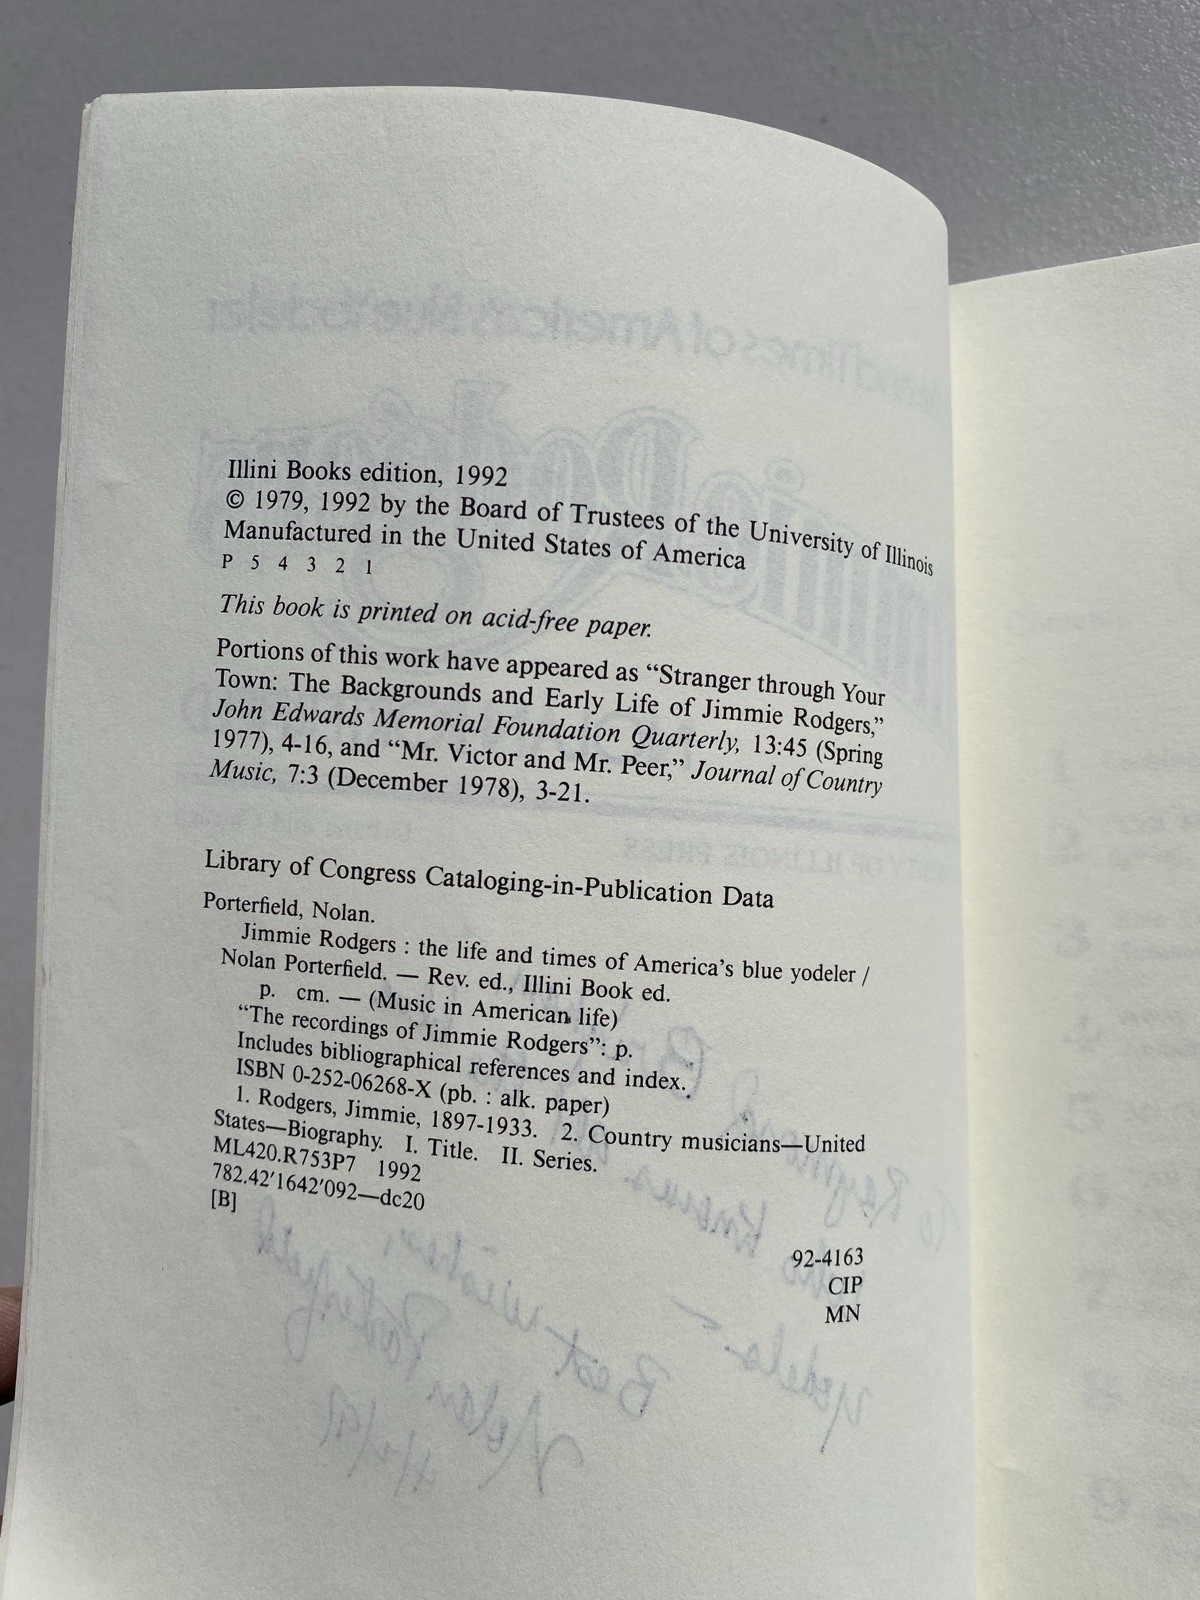 Illini Books edition, 1992
© 1979, 1992 by the Board of Trustees of the University of Illinois
Manufactured in the United States of America
P 5 4 3 2 1
This book is printed on acid-free paper.
Portions of this work have appeared as “Stranger through Your
Town: The Backgrounds and Early Life of Jimmie Rodgers,”
John Edwards Memorial Foundation Quarterly, 13:45 (Spring
1977), 4-16, and “Mr. Victor and Mr. Peer,” Journal of Country
Music, 7:3 (December 1978), 3-21.
Library of Congress Cataloging-in-Publication Data
Porterfield, Nolan.
Jimmie Rodgers : the life and times of America’s blue yodeler /
Nolan Porterfield. — Rev. ed., Illini Book ed.
p. cm. — (Music in American life)
“The recordings of Jimmie Rodgers”: p.
Includes bibliographical references and index.
ISBN 0-252-06268-X (pb. : alk. paper)
1. Rodgers, Jimmie, 1897-1933. 2. Country musicians—United
States—Biography. I. Title. II. Series.
ML420.R753P7 1992
782.42′1642′092—dc20
[B]
92-4163
CIP
MN